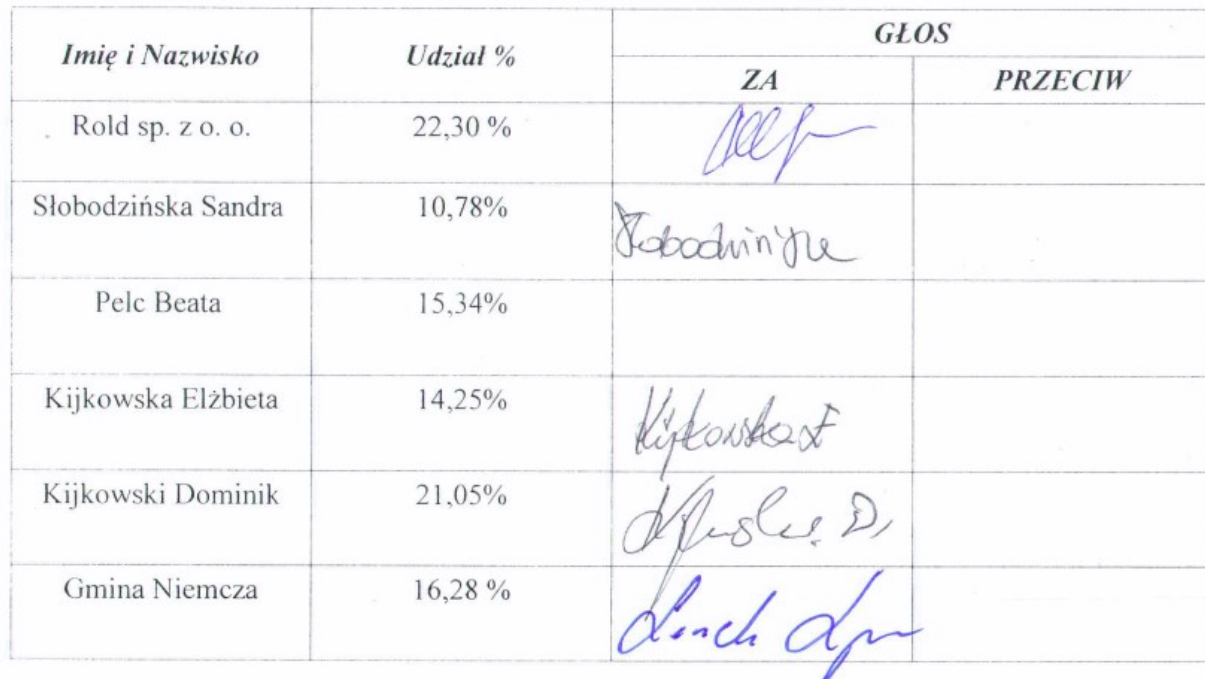 Imię i Nazwisko Udział % GŁOS
ZA PRZECIW
Rold sp. z o. o. 22,30 %
Słobodzińska Sandra 10,78%
Pelc Beata 15,34%
Kijkowska Elżbieta 14,25% Kijkowska E
Kijkowski Dominik 21,05%
Gmina Niemcza 16,28 %